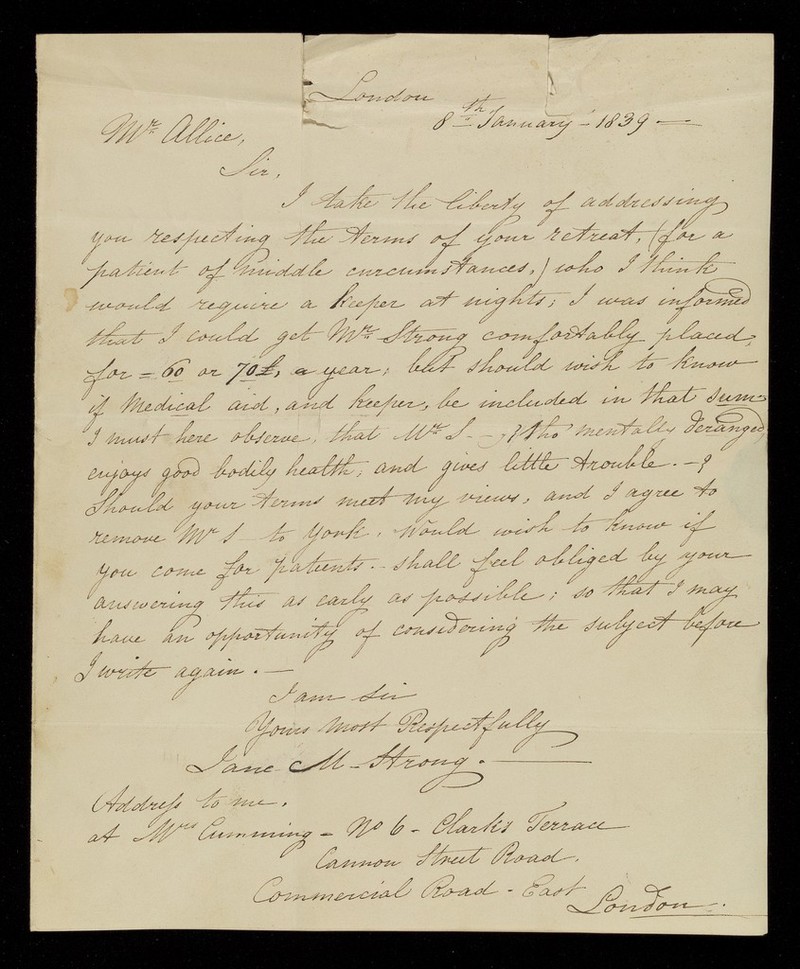 London
8th January - 1839 -
Mr Allice,
Sir,
I take the liberty of addressing
you respecting the terms of your retreat, (for a
patient of middle curcumstances,) who I think
would require a keeper at nights; I was informed
that I could get Mr Strong comfortably placed,
for = 60 or 70£, a year; but should wish to know
if Medical aid, and keeper, be included in that sum
I must here observe, that Mr S - tho' mentally deranged
enjoys good bodily health, and gives little trouble. -
Should your terms meet my views, and I agree to
remove Mr S to York, Would wish to know if
you come for patients. - shall feel obliged by your
answering this as early as possible; so that I may
have an opportunity of considering the subject before
I write again. -
I am Sir
Yours Most Respectfully
Jane M - Strong. -
Address to me.
at Mrs Cumming - No 6 - Clark's Terrace
Cannon Street Road.
Commercial Road - East
London -.